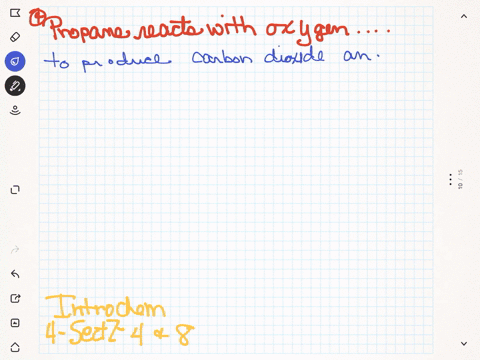 Propane reacts with oxygen ....
to produce carbon dioxide an.
Intro chem
4-Sect7-4 & 8
10 / 15